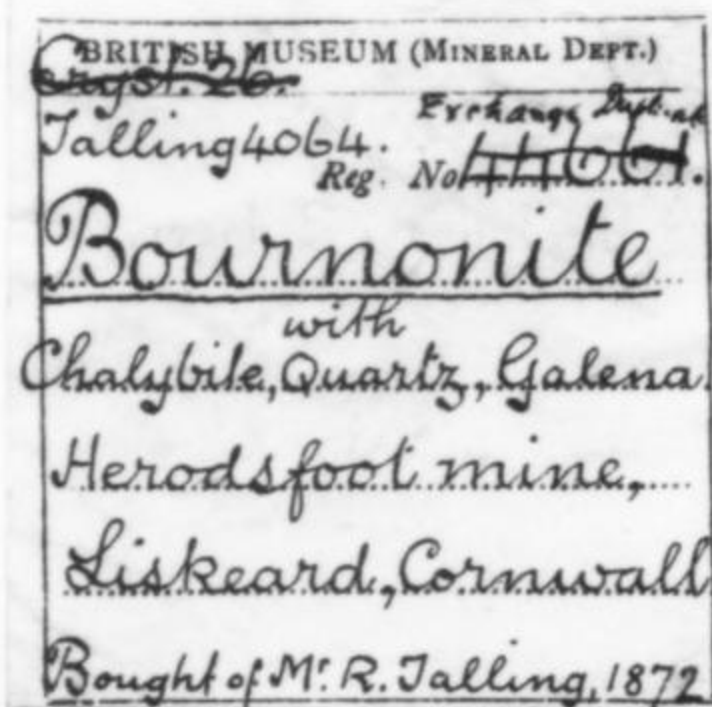 BRITISH MUSEUM (MINERAL DEPT.)
Cryst. 26.
Talling 4064. Exchange Dupl.
Reg. No 44661.
Bournonite
with
Chalybite, Quartz, Galena
Herodsfoot mine,
Liskeard, Cornwall
Bought of Mr. R. Talling, 1872